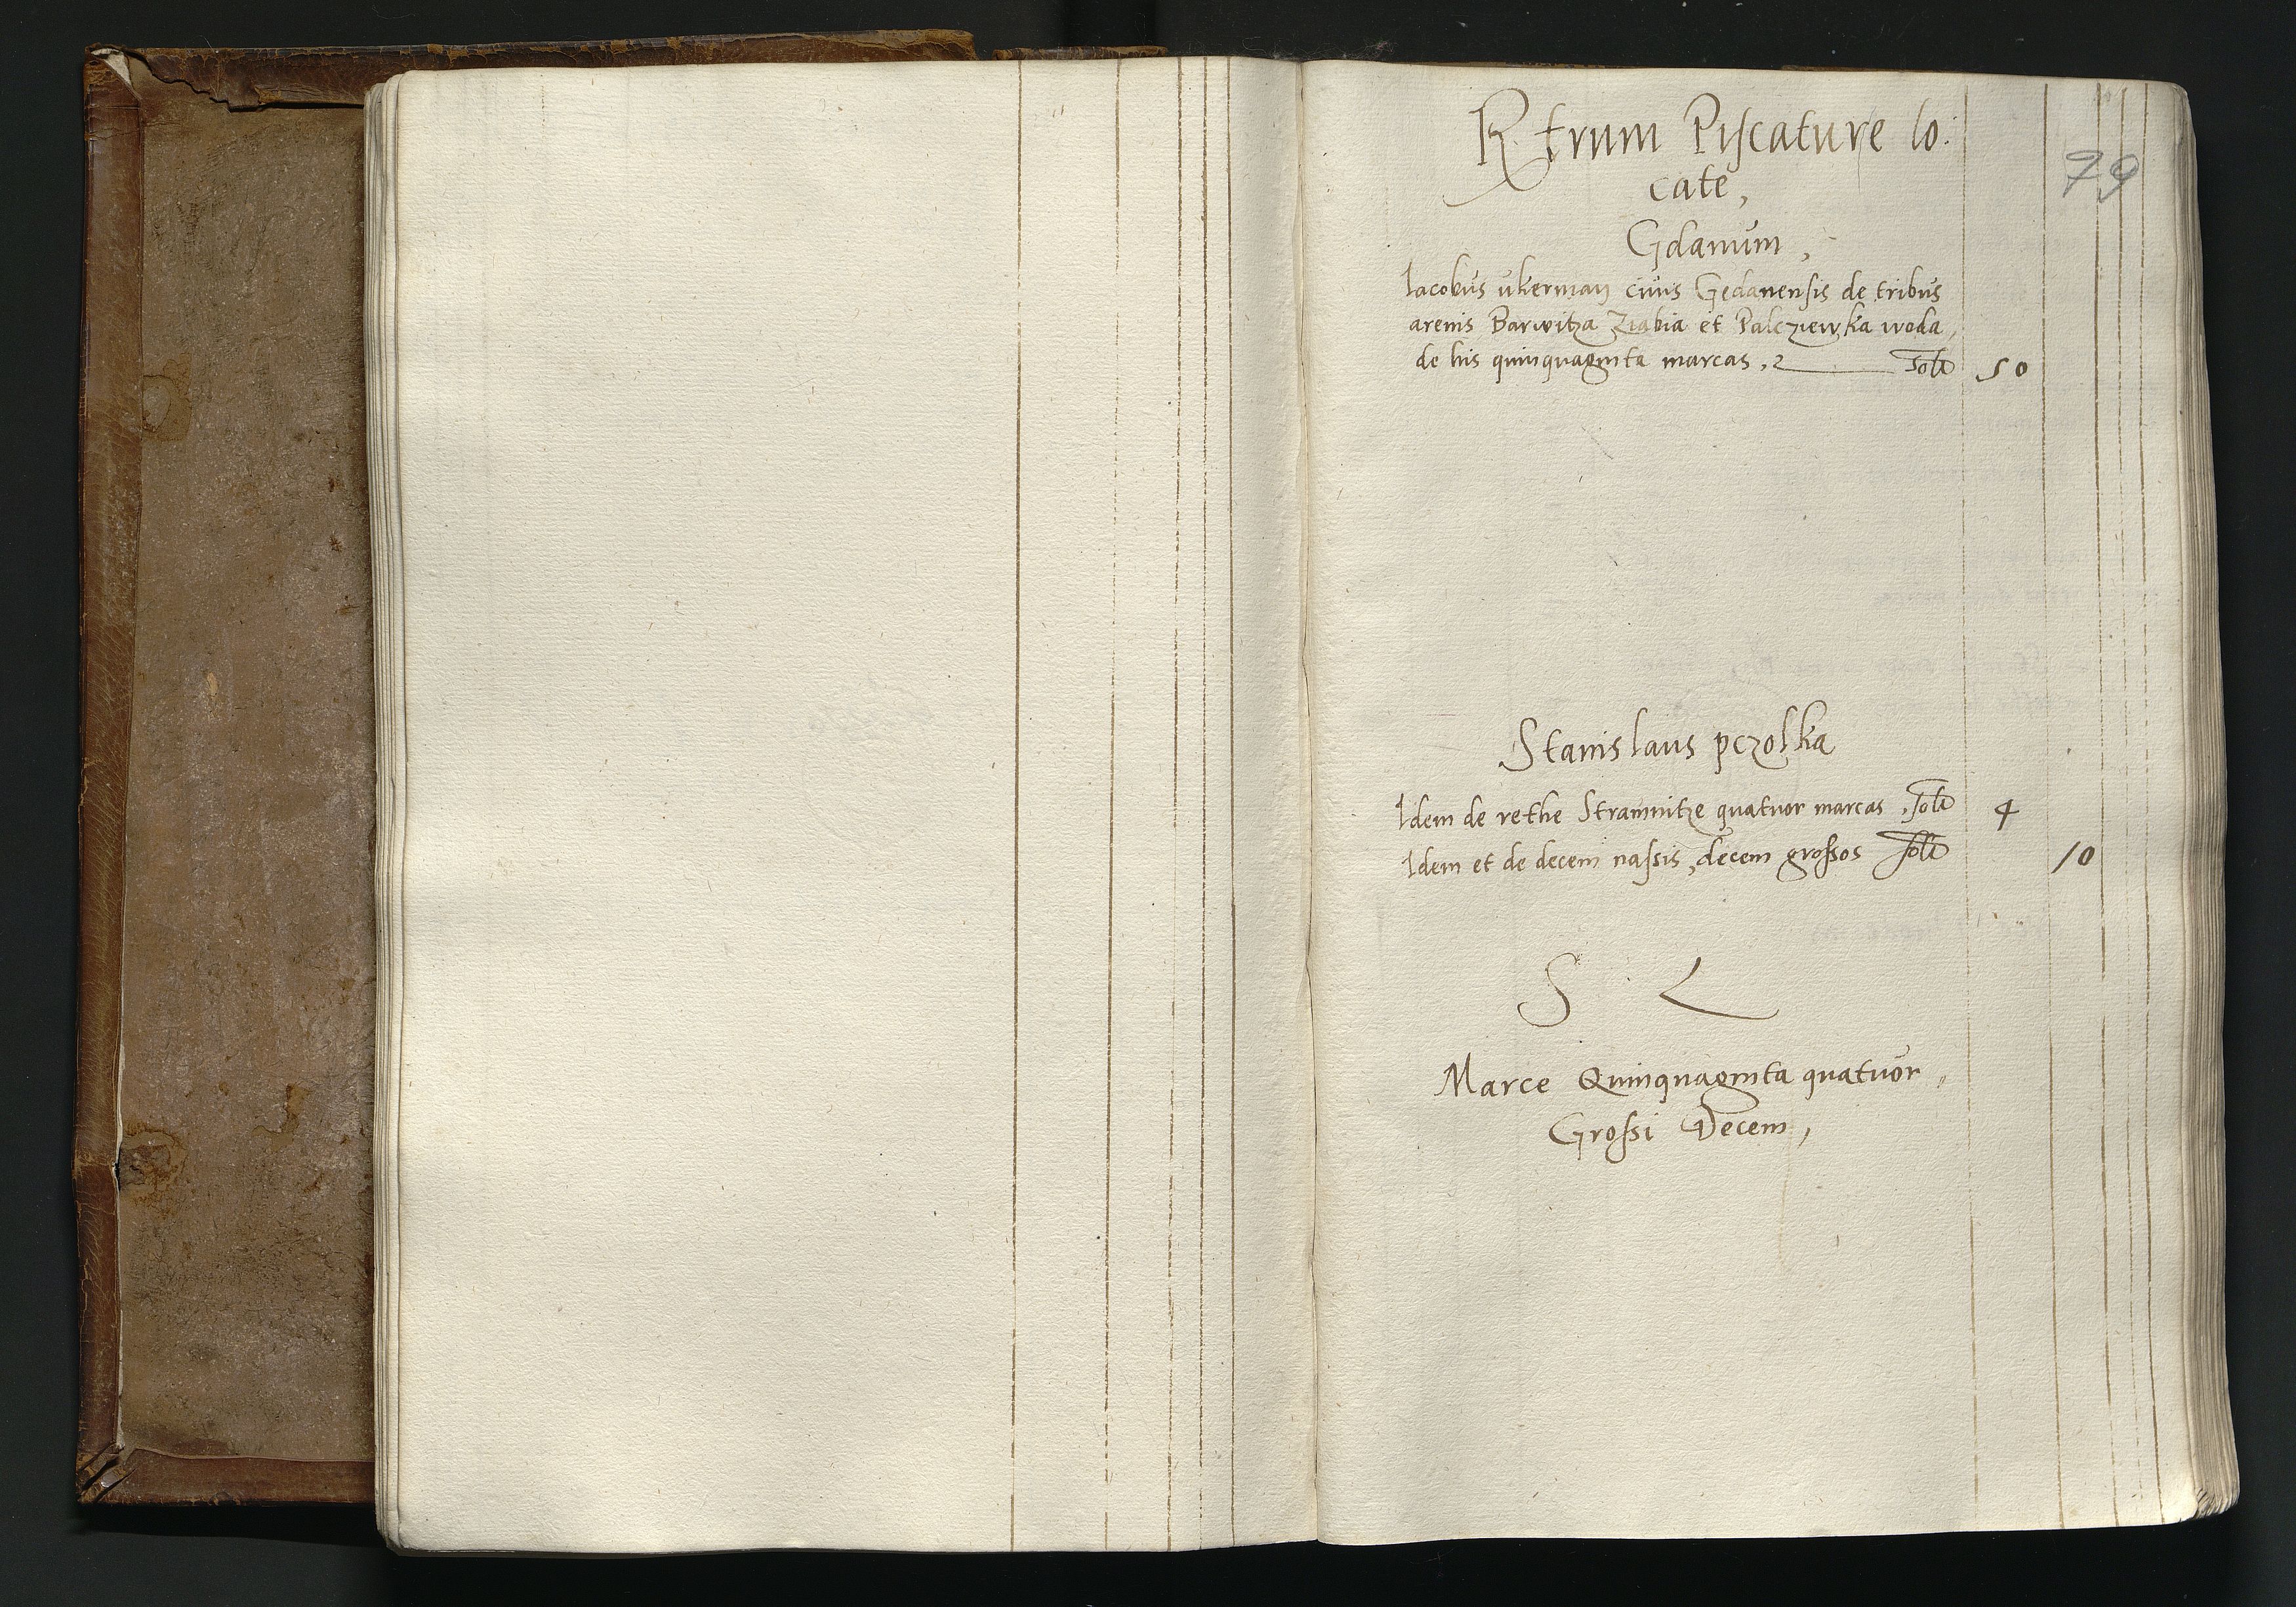 Rtrum Piscature lo:
cate,
79
Gdanum,
Iacobus ukerman civis Gedanensis de tribus
arenis Barwitza Ziabia et Palcziewska woda,
de his quinquaginta marcas, solt 50
Stanislaus pczolka
Idem de rethe Stramnitze quatuor marcas, solt 4
Idem et de decem nassis, decem grossos solt 10
S L
Marce Quinquaginta quatuor,
Grossi Decem,